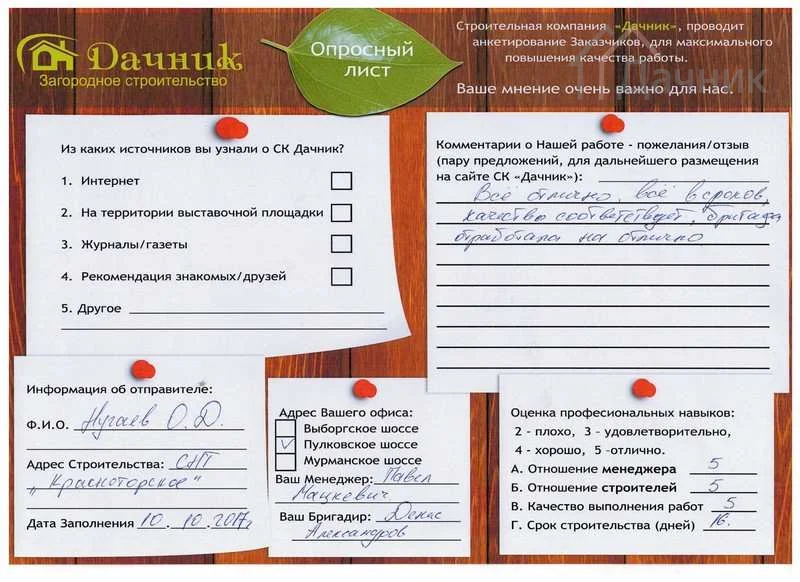 Дачник
Загородное строительство
Опросный
лист
Строительная компания «Дачник», проводит
анкетирование Заказчиков, для максимального
повышения качества работы.
Ваше мнение очень важно для нас.
Дачник
Из каких источников вы узнали о СК Дачник?
1. Интернет
2. На территории выставочной площадки
3. Журналы/газеты
4. Рекомендация знакомых/друзей
5. Другое
Комментарии о Нашей работе - пожелания/отзыв
(пару предложений, для дальнейшего размещения
на сайте СК «Дачник»):
Всё отлично, всё в сроков,
качество соответствует, бригада
отработала на отлично
Информация об отправителе:
Ф.И.О. Нугаев О.Д.
Адрес Строительства: СНТ
"Красногорское"
Дата Заполнения 10.10.2017г
Адрес Вашего офиса:
Выборгское шоссе
Пулковское шоссе
Мурманское шоссе
Ваш Менеджер: Павел
Мацкевич
Ваш Бригадир: Денис
Александров
Оценка професиональных навыков:
2 - плохо, 3 – удовлетворительно,
4 - хорошо, 5 –отлично.
А. Отношение менеджера 5
Б. Отношение строителей 5
В. Качество выполнения работ 5
Г. Срок строительства (дней) 16.